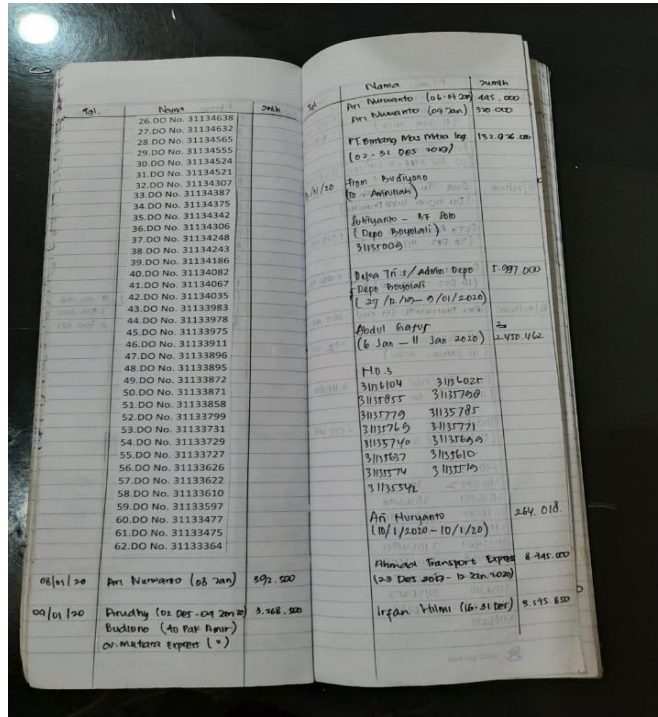 Tgl. Nama Jmlh
26.DO No. 31134638
27.DO No. 31134632
28.DO No. 31134565
29.DO No. 31134555
30.DO No. 31134524
31.DO No. 31134521
32.DO No. 31134307
33.DO No. 31134387
34.DO No. 31134375
35.DO No. 31134342
36.DO No. 31134306
37.DO No. 31134248
38.DO No. 31134243
39.DO No. 31134186
40.DO No. 31134082
41.DO No. 31134067
42.DO No. 31134035
43.DO No. 31133983
44.DO No. 31133978
45.DO No. 31133975
46.DO No. 31133911
47.DO No. 31133896
48.DO No. 31133895
49.DO No. 31133872
50.DO No. 31133871
51.DO No. 31133858
52.DO No. 31133799
53.DO No. 31133731
54.DO No. 31133729
55.DO No. 31133727
56.DO No. 31133626
57.DO No. 31133622
58.DO No. 31133610
59.DO No. 31133597
60.DO No. 31133477
61.DO No. 31133475
62.DO No. 31133364
08/01/20 Ari Nurwanto (08 Jan) 392.500
09/01/20 Arudhy (02 Des - 09 Jan 20) 3.268.500
Budiono (40 Pak Amir)
cv. mutiara Express (")
Tgl Nama Jumlh
Ari Nurwanto 445.000
Ari Nurwanto (09 Jan) 320.000
PT. Bintang Mas Mitra log.
(02 - 31 Des 2019)
/01/20 from Budiyono
(To Amirullah)
Subiyanto - BF Solo
(Depo Boyolali)
31135009
Deka Tri S / Admin Depo 5.997.000
Depo Boyolali
(27/12/19 - 9/01/2020)
Abdul Gafur
(6 Jan - 11 Jan 2020) 2.450.462
No.s
31136104 31136025
31135855 31135798
31135779 31135785
31135769 31135771
31135740 31135699
31135637 31135610
31135574 31135519
31135542
Ari Nuryanto 264.018.
(10/1/2020 - 10/1/20)
Ahmad Transport Express 8.745.000
(23 Des 2019 - 12 Jan 2020)
Irfan Hilmi (16-31 Des) 3.595.850